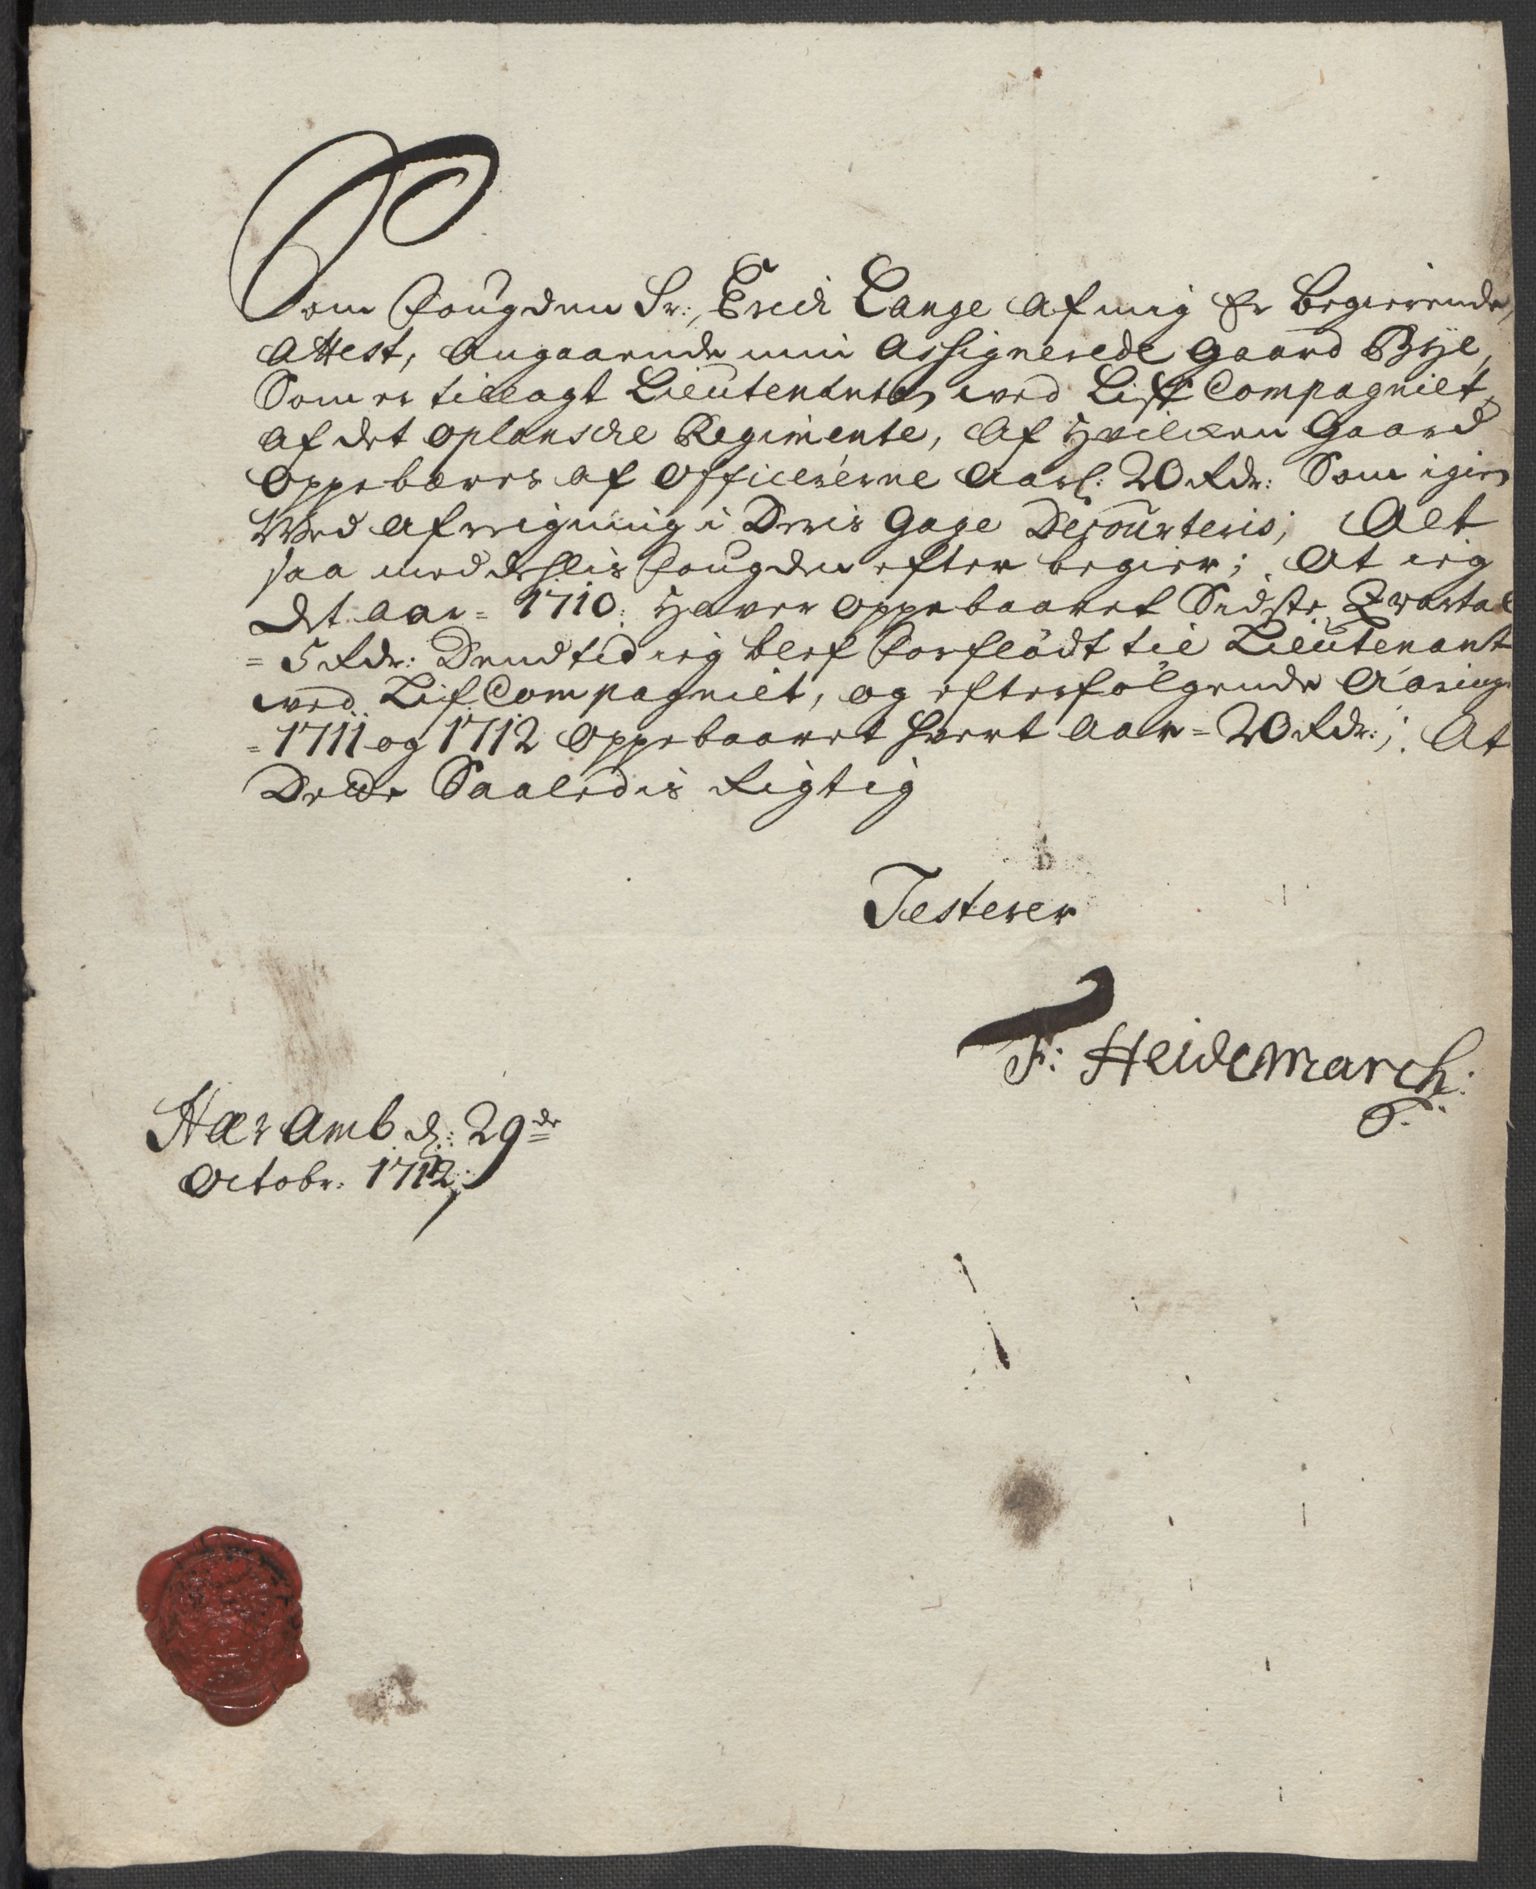 Som Fougden Sr: Erich Lange af mig Er Begierende
Attest, Angaaende min Assignerede gaard Bÿe,
Som er tillagt Lieutenanten ved Lif Compagniet,
af det oplansche Regimente, Af Hvilcken Gaard
oppebæres af officererne Aarl: 20 Rdr: Som igien
Ved Afreigning i Deris Gage Decourteris; Alt
saa meddehlis Fougden efter begier; At ieg
det aar = 1710: Haver oppebaaret Sidste Qvartal
= 5 Rdr: Dend tid ieg blef forflødt til Lieutenant
ved Lif Compagniet, og efterfølgende Aaringer
= 1711 og 1712 oppebaaret hvert Aar = 20 Rdr:; At
Dette Saaledis Rigtig
Testerer
F: Heidemarch:
d: 29de
Octobr: 1712